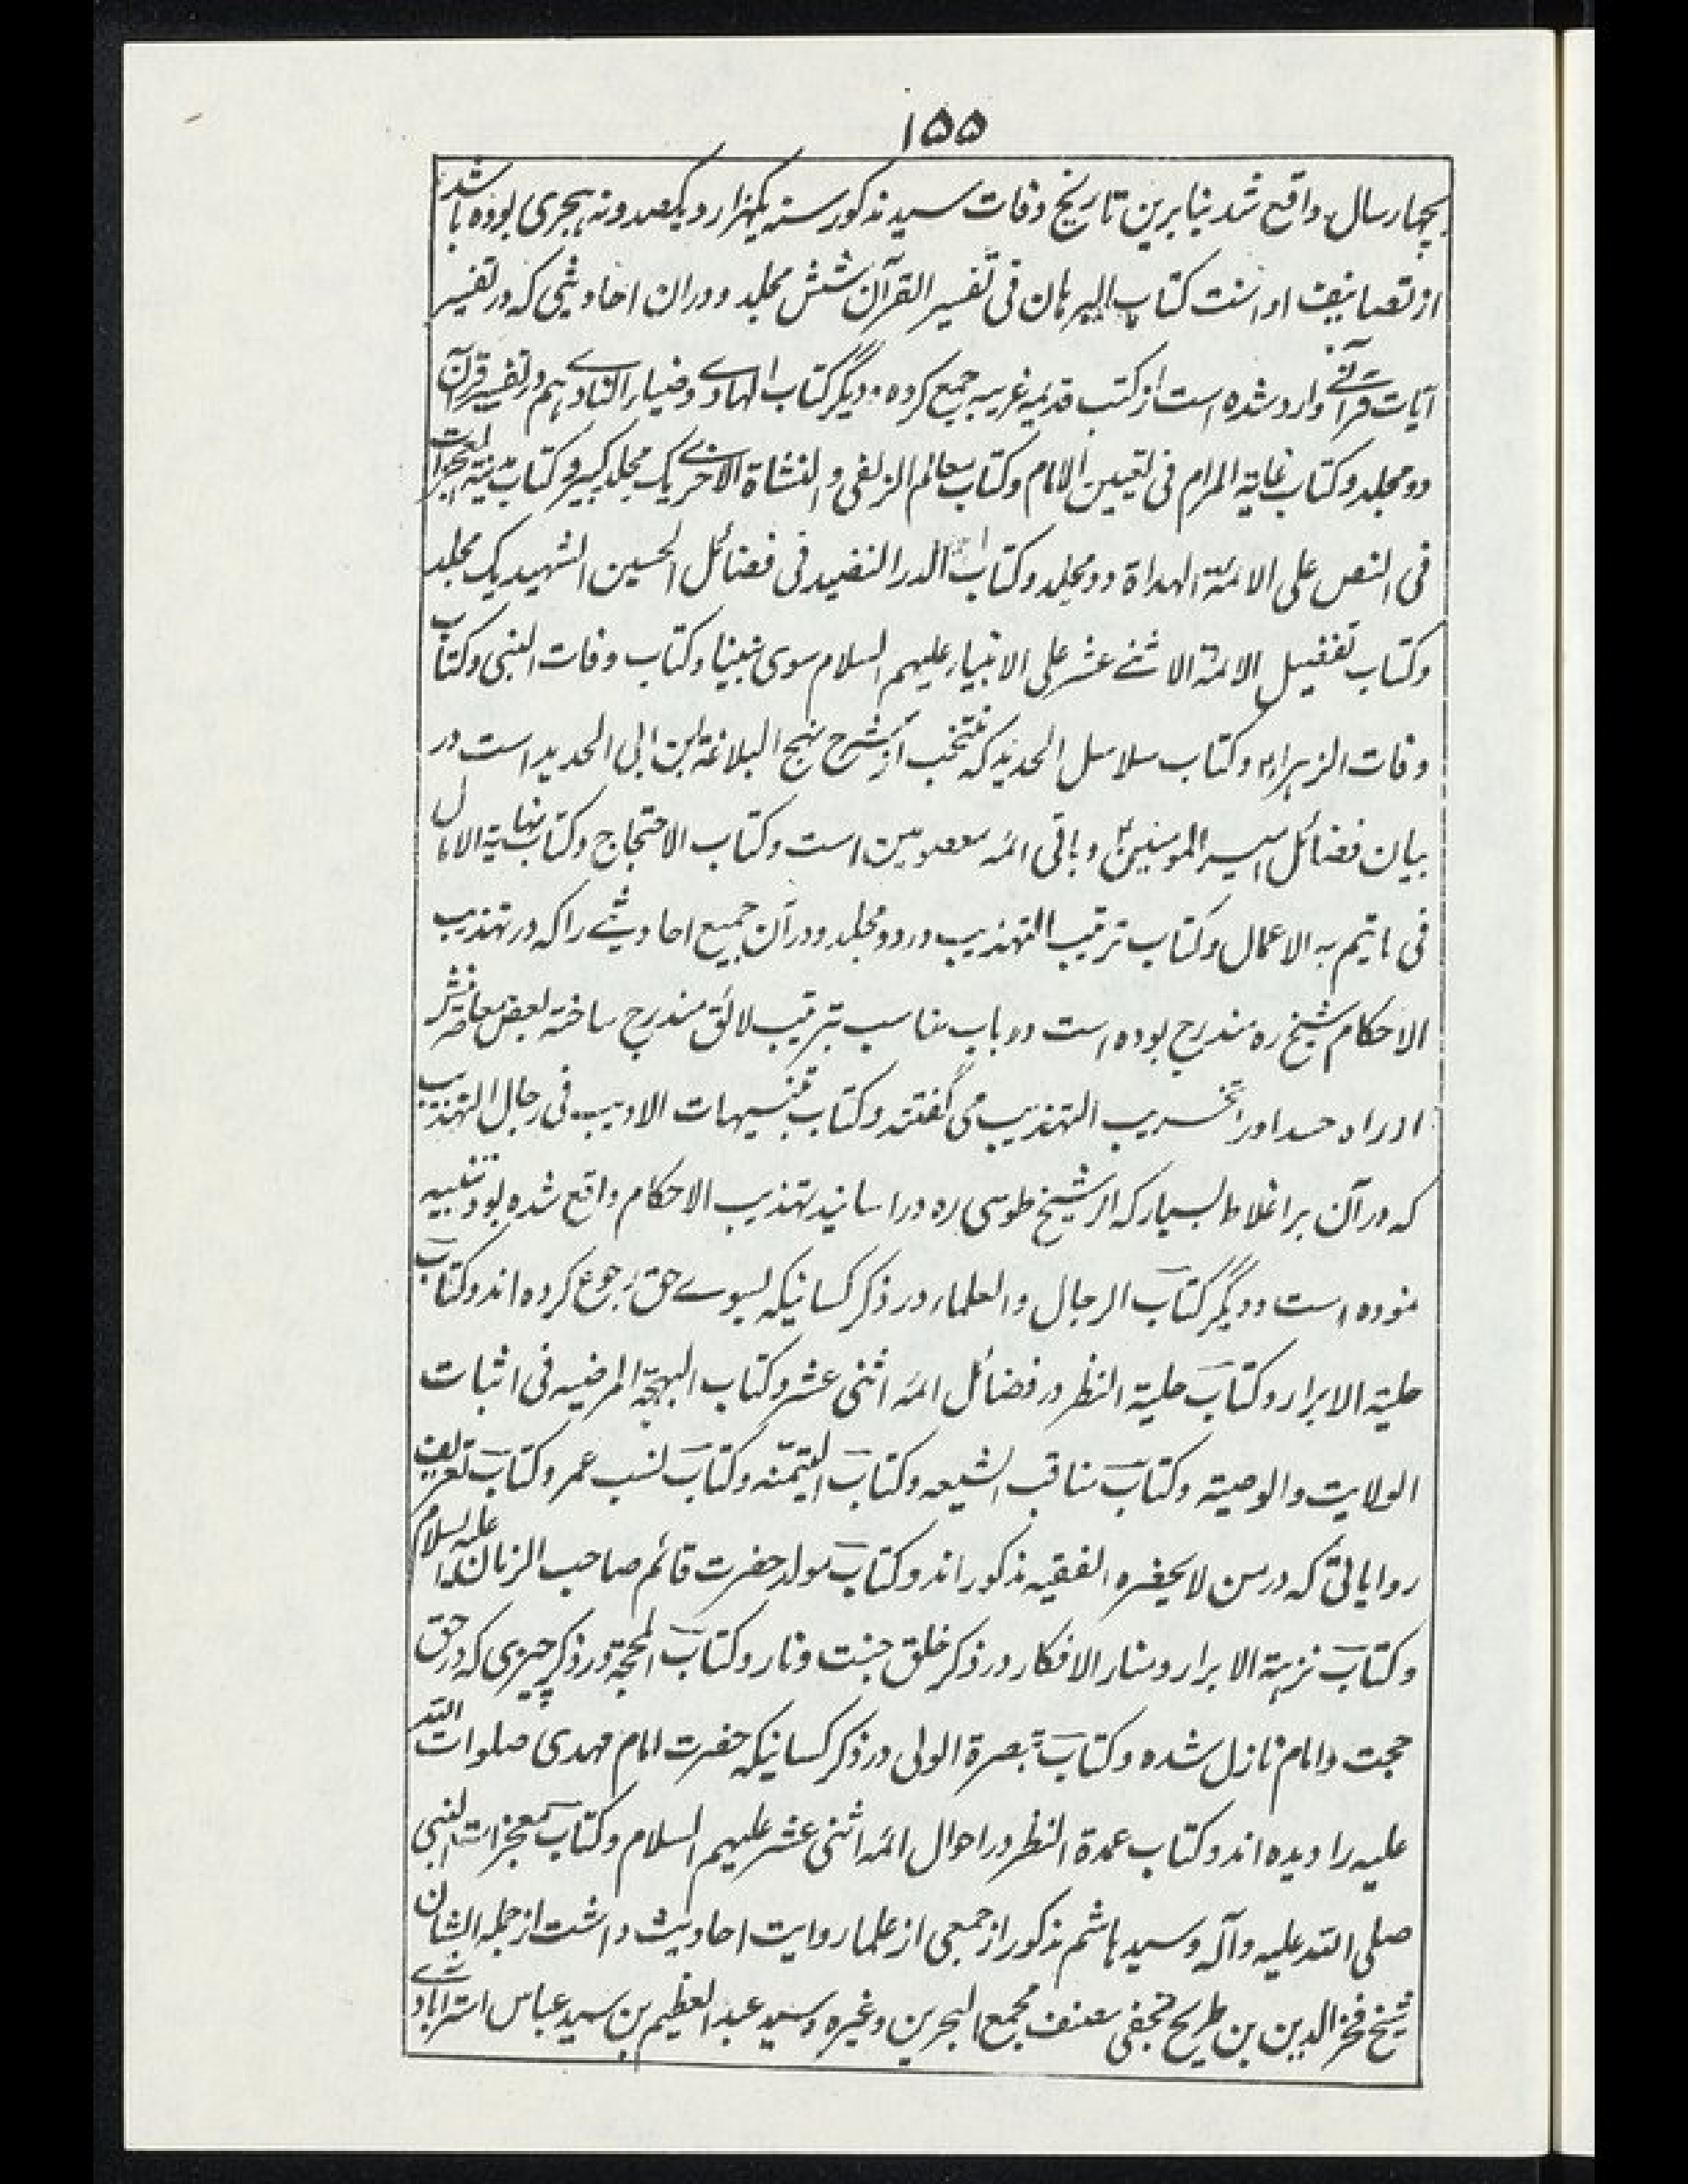 ۱۵۵
بچهار سال واقع شد بنابرین تاریخ وفات سید مذکور سنه یکهزار و یکصد و نه هجری بوده باشد
از تصانیف اوست کتاب البرهان فی تفسیر القرآن شش مجلد و دران احادیثی که در تفسیر
آیات قرآنے وارد شده است از کتب قدیمه غریبه جمع کرده و دیگر کتاب الهادے وضیاء النادے هم در تفسیر قرآن
دو مجلد و کتاب غایة المرام فی تعیین الامام و کتاب معالم الزلفی و النشاة الاخرے یک مجلد کبیر و کتاب مدینة المعجزات
فی النص علی الائمة الهداة دو مجلد و کتاب الدر النضید فی فضائل الحسین الشهید یک مجلد
و کتاب تفضیل الائمة الاثنے عشر علی الانبیاء علیهم السلام سوی نبینا و کتاب وفات النبی و کتاب
وفات الزهراء و کتاب سلاسل الحدید که منتخب از شرح نهج البلاغة ابن ابی الحدید است در
بیان فضائل امیر المومنین و باقی ائمه معصومین است و کتاب الاحتجاج و کتاب نهایة الامال
فی ما یتم به الاعمال و کتاب ترتیب التهذیب در دو مجلد و در آن جمیع احادیثے را که در تهذیب
الاحکام شیخ ره مندرج بوده است در باب مناسب بترتیب لائق مندرج ساخته بعض معاصرینش
از راه حسد او را تخریب التهذیب می گفتند و کتاب تنبیهات الادیب فی رجال التهذیب
که در آن بر اغلاط بسیار که از شیخ طوسی ره در اسانید تهذیب الاحکام واقع شده بود تنبیه
نموده است و دیگر کتاب الرجال والعلماء در ذکر کسانیکه بسوے حق رجوع کرده اند و کتاب
حلیة الابرار و کتاب حلیة النظر در فضائل ائمه اثنی عشر و کتاب البهجة المرضیه فی اثبات
الولایت والوصیة و کتاب مناقب الشیعه و کتاب الیتیمة و کتاب نسب عمر و کتاب تعریف
روایاتی که در من لا یحضره الفقیه مذکور اند و کتاب مولد حضرت قائم صاحب الزمان علیه السلام
و کتاب نزهة الابرار و منار الافکار در ذکر خلق جنت و نار و کتاب المحجة در ذکر چیزی که در حق
حجت و امام نازل شده و کتاب تبصرة الولی در ذکر کسانیکه حضرت امام مهدی صلوات الله
علیه را دیده اند و کتاب عمدة النظر در احوال ائمه اثنی عشر علیهم السلام و کتاب معجزات النبی
صلی الله علیه و آله و سید هاشم مذکور از جمعی از علما روایت احادیث داشت از جمله ایشان
شیخ فخر الدین بن طریح نجفی مصنف مجمع البحرین وغیره و سید عبد العظیم بن سید عباس استرآبادے